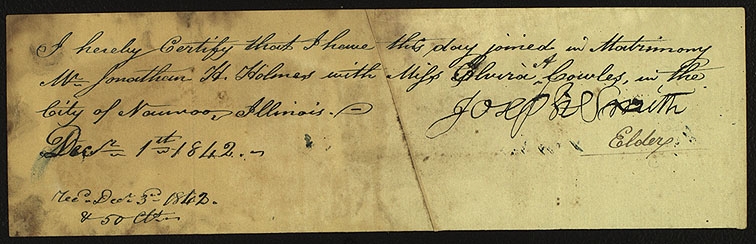 I hereby Certify that I have this day joined in Matrimony
Mr Jonathan H. Holmes with Miss Elvira A Cowles, in the
City of Nauvoo, Illinois.
Joseph Smith
Decr 1st 1842.
Elder.
Recd Decr 3rd 1842.
& 50 Cts